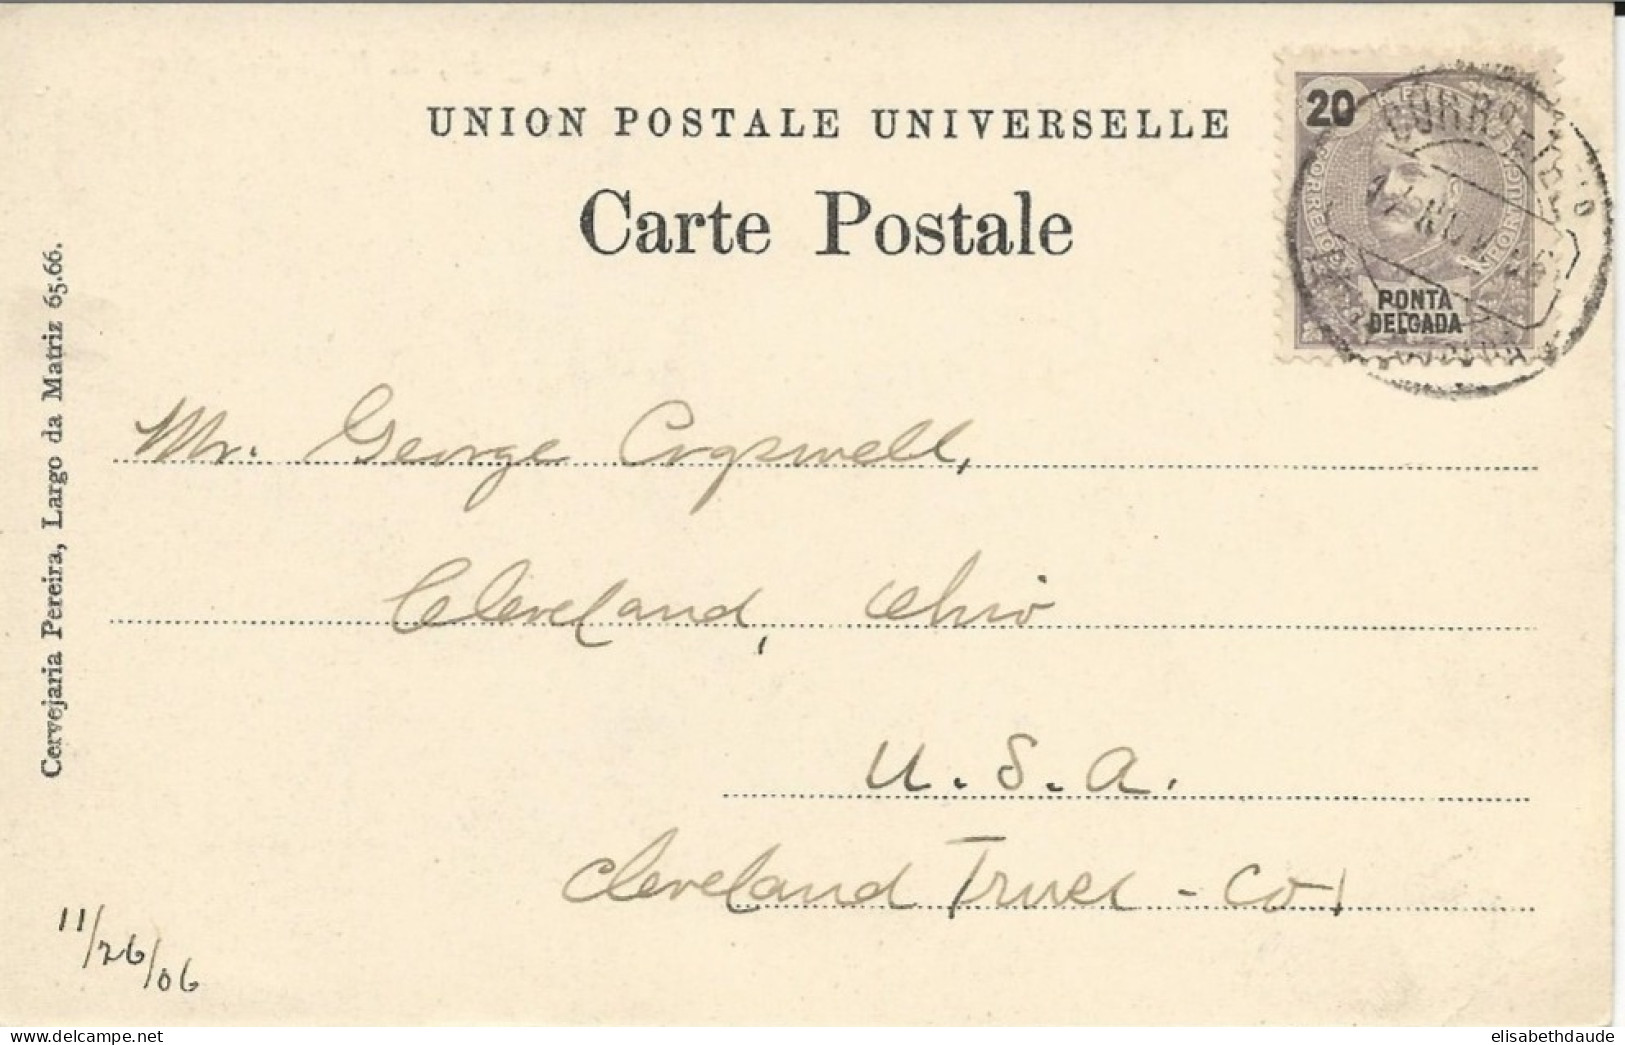 UNION POSTALE UNIVERSELLE
Carte Postale
20
CORREIOS
PONTA
DELGADA
17 NOV
Cervejaria Pereira, Largo da Matriz 65.66.
Mr. George Cogswell,
Cleveland, Ohio
U.S.A.
Cleveland Trust-Co.
11/26/06
delcampe.net
elisabethdaude